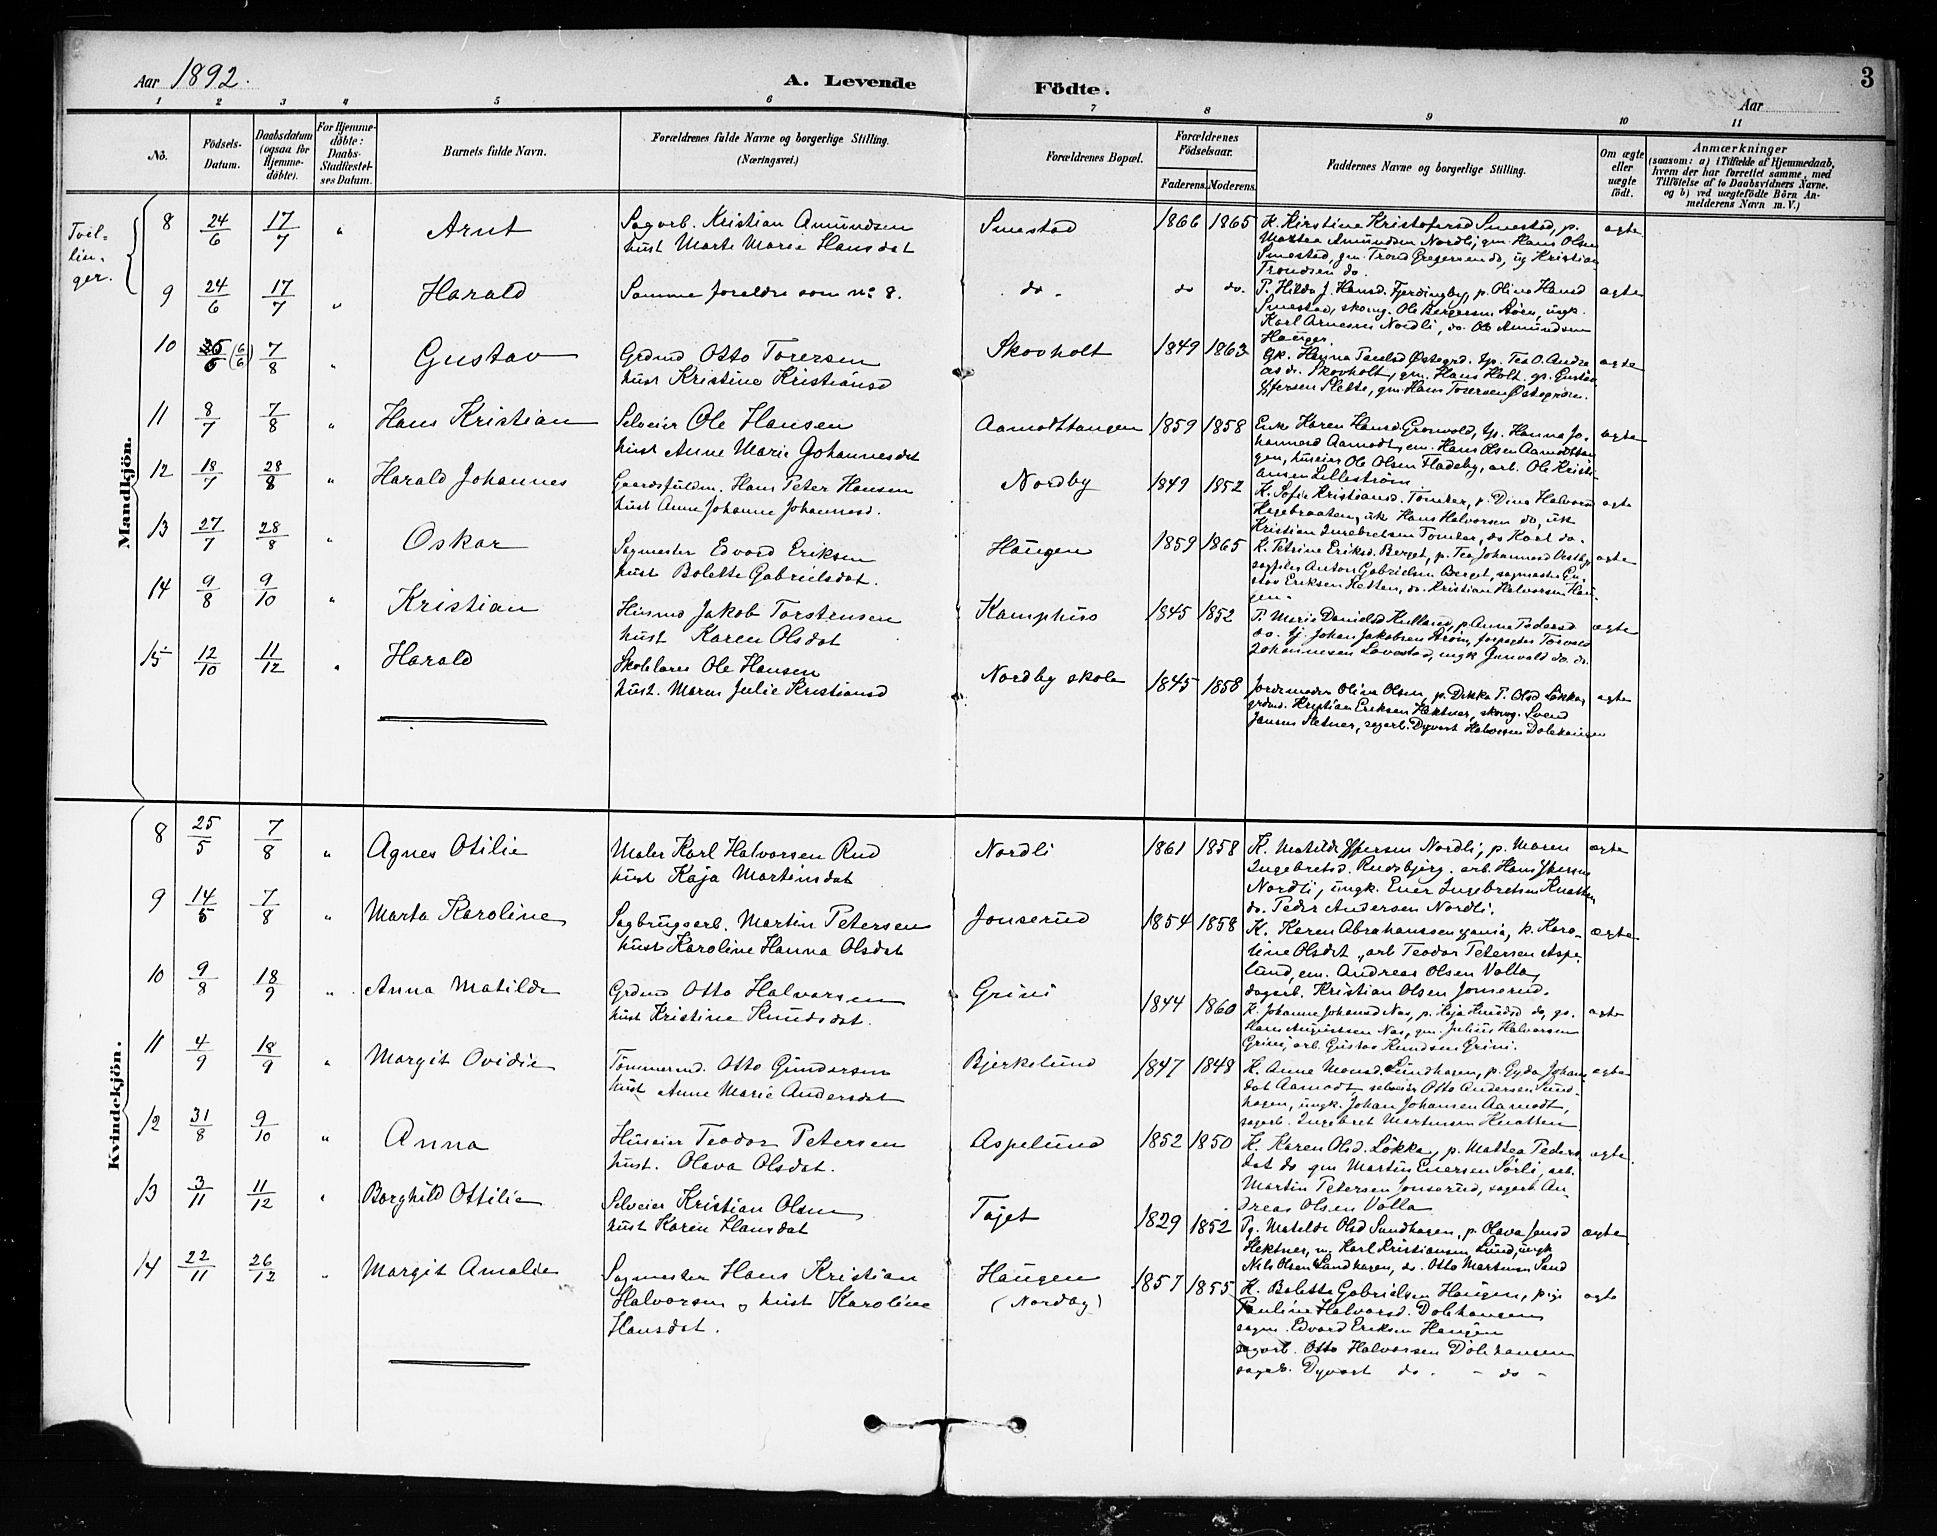 Aar 1892.
A. Levende Födte.
3
Aar
1 2 3 4 5 6 7 8 9 10 11
No.
Födsels-Datum.
Daabsdatum (ogsaa for Hjemme-döbte).
For Hjemme-döbte: Daabs-Stadfæstel-ses Datum.
Barnets fulde Navn.
Forældrenes fulde Navne og borgerlige Stilling. (Næringsvei.)
Forældrenes Bopæl.
Forældrenes Födselsaar.
Faderens. Moderens.
Faddernes Navne og borgerlige Stilling.
Om ægte eller uægte födt.
Anmærkninger
(saasom: a) i Tilfælde af Hjemmedaab, hvem der har forrettet samme, med Tilföielse af to Daabsvidners Navne, og b) ved uægtefödte Börn An-melderens Navn m. V.)
Mandkjön.
Tvil-
lin-
ger.
8 24/6 17/7 " Arnt
Sagarb. Kristian Amundsen
hust Marte Marie Hansdat
Smestad 1866 1865
K. Kirstine Kristofersd Smestad, p.
Martea Amundsen Nordli, gm. Hans Olsen
Smestad, gm. Trond Gregersen do, ug Kristian
Trondsen do.
ægte
9 24/6 17/7 " Harald
Samme foreldre som no 8.
do. do do.
P. Hilda J. Hansd. Fjerdingby, p. Oline Hansd
Smestad, skomg. Ole Bergersen, ungk.
Karl Arnesen Nordli, do. Ole Amundsen
Haugen.
ægte
10 (6/6) 7/8 " Gustav
Grdmd Otto Torersen
hust Kristine Kristiansd
Skovholt 1849 1863
Gk. Hanna Paulsd Østegrd. tp. Tea O. Andre
as do. Skovholt, gm. Hans Holt. gp. Gustav
Iffersen Slette, gm. Hans Torersen Østegrden.
ægte
11 8/7 7/8 " Hans Kristian
Selveier Ole Hansen
hust Anne Marie Johannesdat
Aamodttangen 1859 1858
Enk. Karen Hansd. Gronvold, tp. Hanna Jo-
hannesd Aamodt, em. Hans Olsen Aamodttan
gen, huseier Ole Olsen Fladeby, arb. Ole Kristi-
ansen Lillestrøm
ægte
12 18/7 28/8 " Harald Johannes
Gaardsfuldm. Hans Peter Hansen
hust Anne Johanne Johannesd.
Nordby 1849 1852
K. Sofie Kristiansd. Tomter, p. Dina Halvorsd
Hagebraaten, uk Hans Halvorsen do, uk
Kristian Ingebretsen Tomter, do Karl do.
ægte
13 27/7 28/8 " Oskar
Sagmester Edvard Eriksen
hust Bolette Gabrielsdat.
Haugen 1859 1865
K. Petrine Eriksd. Berget, p. Tea Johannesd Vestby
Anton Gabrielsen Berget, sagmester Gu-
stav Eriksen Hetten, do. Kristian Halvorsen Hau-
gen.
ægte
14 9/8 9/10 " Kristian
Husmd Jakob Torstensen
hust Karen Olsdat
Kamphus 1845 1852
P. Marie Danielsd Hulland, p Anne Pedersd
do. tj. Johan Jakobsen Strøm, forpagter Torvald
Johannesen Lovestad, ungk Gunvald do. do.
ægte
15 12/10 11/12 " Harald
Skolelærer Ole Hansen
hust. Maren Julie Kristiansd
Nordby skole 1845 1858
Jordemoder Oline Olsen, p. Dikka P. Olsd Løkka,
grdmd. Kristian Eriksen Hektner, skomg. Svend
Jansen Sletner, sagarb. Dyvert Halvorsen Dølehaugen
ægte
Kvindekjön.
8 25/5 7/8 " Agnes Otilie
Maler Karl Halvorsen Rud
hust Kaja Martinsdat
Nordli 1861 1858
K. Matilde Iffersen Nordli, p. Maren
Ingebretsd. Rudsbjerg. arb Hans Iffersen
Nordli, ungk. Ener Ingebretsen Knatten,
do. Peder Andersen Nordli.
ægte
9 14/5 7/8 " Marta Karoline
Sagbrugsarb. Martin Petersen
hust Karoline Hanna Olsdat
Jonserud 1854 1858
K. Karen Abrahamssen, p. Karo-
line Olsdat, arb Teodor Petersen Aspe-
lund, em. Andreas Olsen Volla,
dagarb. Kristian Olsen Jonserud.
ægte
10 9/8 18/9 " Anna Matilde
Grdmd Otto Halvorsen
hust Kristine Knudsdat.
Grini 1844 1860
K. Johanne Johansd Nas, p. Kaja Knudsd do, gs.
Hans Augustsen Nas, gm. Julius Halvorsen
Grini, arb. Gustav Knudsen Grini.
ægte
11 4/9 18/9 " Margit Ovidie
Tømmermd. Otto Gundersen
hust Anne Marie Andersdat
Bjerkelund 1847 1848
K. Anne Monsd. Sundhagen, p. Gyda Johans-
dat Aamodt, selveier Otto Andersen Sund
hagen, ungk. Johan Johansen Aamodt,
sagarb. Ingebret Martinsen Knatten
ægte
12 31/8 9/10 " Anna
Huseier Teodor Petersen
hust. Olava Olsdat.
Aspelund 1852 1850
K. Karen Olsd. Løkka, p. Mattea Peders
dat do gm Martin Enersen Sørli, arb.
Martin Petersen Jonserud, sagarb An-
dreas Olsen Volla
ægte
13 3/11 11/12 " Borghild Ottilie
Selveier Kristian Olsen
hust Karen Hansdat
Tajet 1829 1852
Pg. Matilde Olsd Sundhagen, p. Olava Jensd
Hektner, ug Karl Kristiansen Lund, ungk
Nils Olsen Sundhagen, do. Otto Martinsen Sand
ægte
14 22/11 26/12 " Margit Amalie
Sagmester Hans Kristian
Halvorsen og hust Karoline
Hansdat.
Haugen
(Nordby)
1857 1855
K. Bolette Gabrielsen Haugen, pige
Pauline Halvorsd. Dølehaugen
sagm. Edvard Eriksen Haugen
sagarb. Otto Halvorsen Dølehaugen
sagarb. Dyvert do. - do -
ægte